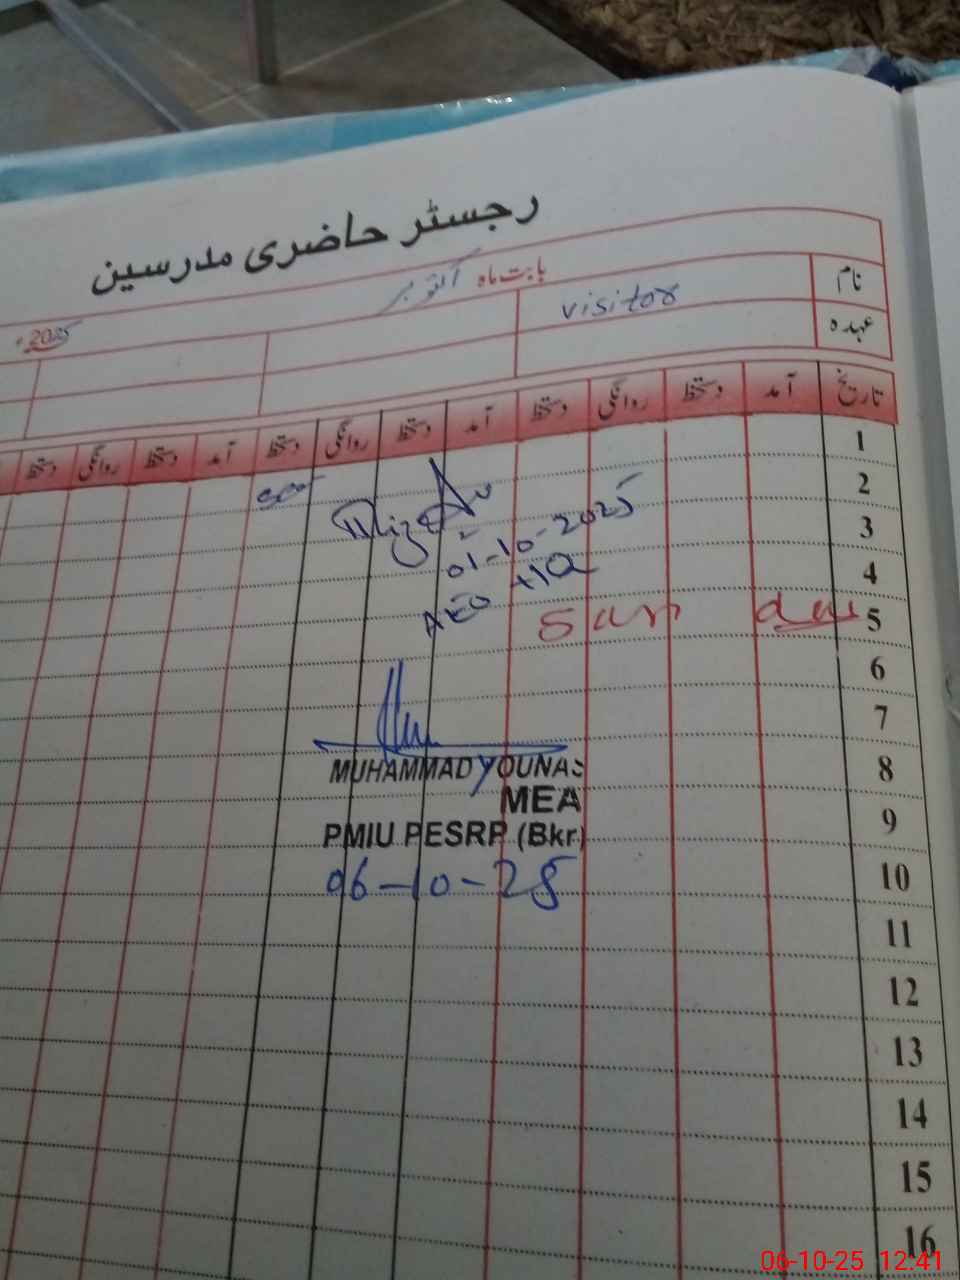 رجسٹر حاضری مدرسین
بابت ماہ اکتوبر 2025ء
نام visitor
عہدہ
تاریخ آمد دستخط روانگی دستخط آمد دستخط روانگی دستخط آمد دستخط روانگی دستخط
1
2
01-10-2025
3
AEO HQ
4
sun day 5
6
7
MUHAMMAD YOUNAS
8
MEA
9
PMIU PESRP (Bkr)
06-10-25
10
11
12
13
14
15
16
06-10-25 12:41